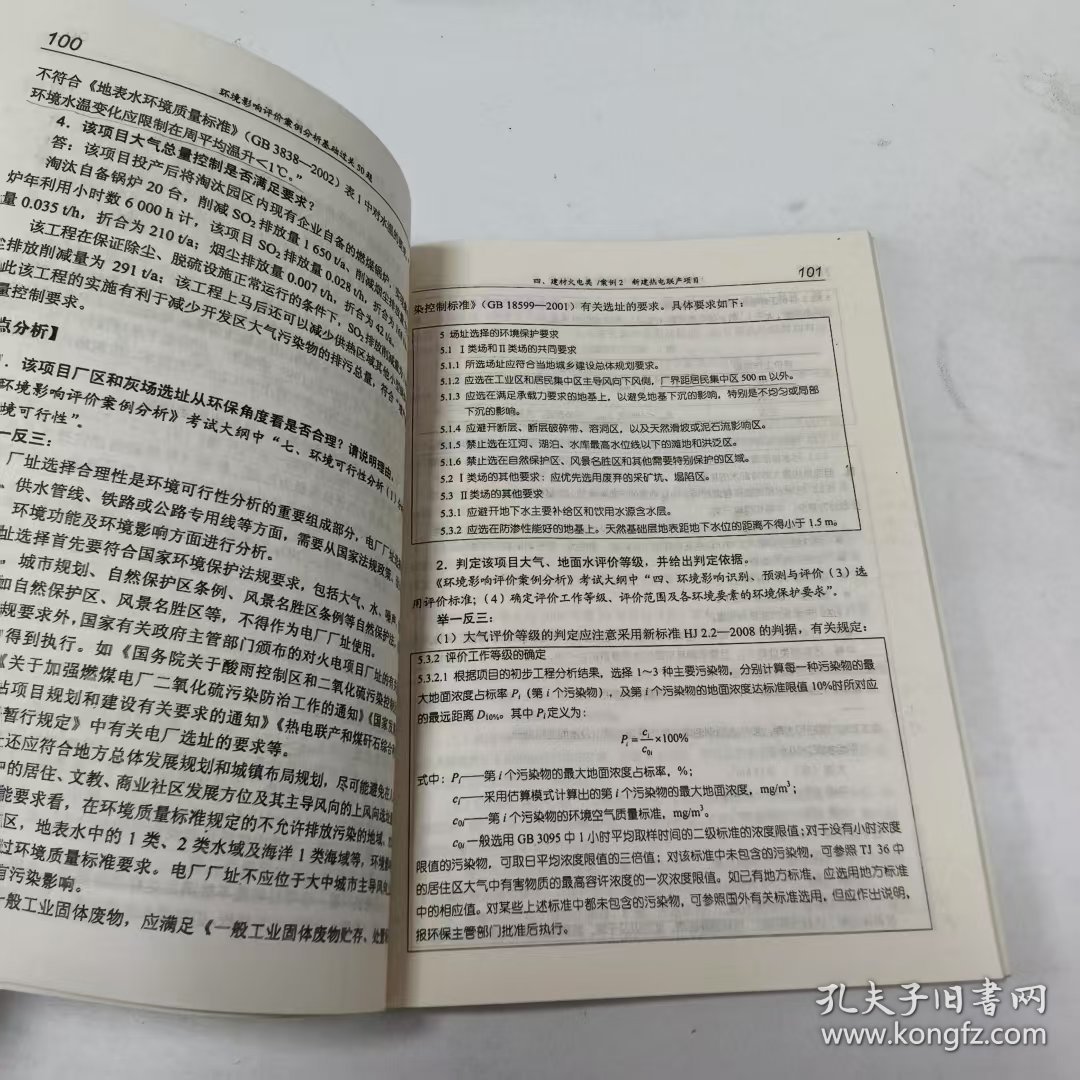 100
环境影响评价案例分析基础过关50题
不符合《地表水环境质量标准》(GB 3838—2002)表1中对水温的要求
环境水温变化应限制在周平均温升<1℃。”
4．该项目大气总量控制是否满足要求？
答：该项目投产后将淘汰园区内现有企业自备的燃煤锅炉
淘汰自备锅炉 20 台，削减 SO₂ 排放量 1 650 t/a、削减烟尘排放
炉年利用小时数 6 000 h 计，该项目 SO₂ 排放量 0.028 t/h，折合为
量 0.035 t/h，折合为 210 t/a；烟尘排放量 0.007 t/h，折合为 42 t/a。
该工程在保证除尘、脱硫设施正常运行的条件下，SO₂ 排放削减量为
尘排放削减量为 291 t/a；该工程上马后还可以减少供热区域其他小
此该工程的实施有利于减少开发区大气污染物的排污总量，符合
量控制要求。
点分析】
．该项目厂区和灰场选址从环保角度看是否合理？请说明理由。
环境影响评价案例分析》考试大纲中“七、环境可行性分析（1）
境可行性”。
一反三：
厂址选择合理性是环境可行性分析的重要组成部分，电厂厂址
、供水管线、铁路或公路专用线等方面，需要从国家法规政策、
环境功能及环境影响方面进行分析。
址选择首先要符合国家环境保护法规要求，包括大气、水、噪声
，城市规划、自然保护区条例、风景名胜区条例等自然保护法
如自然保护区、风景名胜区等，不得作为电厂厂址使用。
规要求外，国家有关政府主管部门颁布的对火电项目厂址的
得到执行。如《国务院关于酸雨控制区和二氧化硫污染控
《关于加强燃煤电厂二氧化硫污染防治工作的通知》《国家
站项目规划和建设有关要求的通知》《热电联产和煤矸石综合
暂行规定》中有关电厂选址的要求等。
址还应符合地方总体发展规划和城镇布局规划，尽可能避免在
中的居住、文教、商业社区发展方位及其主导风向的上风向选
能要求看，在环境质量标准规定的不允许排放污染的地域，
区，地表水中的 1 类、2 类水域及海洋 1 类海域等，环境
过环境质量标准要求。电厂厂址不应位于大中城市主导风向
有污染影响。
一般工业固体废物，应满足《一般工业固体废物贮存、处置
四、建材火电类/案例2 新建热电联产项目
101
染控制标准》（GB 18599—2001）有关选址的要求。具体要求如下：
5 场址选择的环境保护要求
5.1 Ⅰ类场和Ⅱ类场的共同要求
5.1.1 所选场址应符合当地城乡建设总体规划要求。
5.1.2 应选在工业区和居民集中区主导风向下风侧，厂界距居民集中区 500 m 以外。
5.1.3 应选在满足承载力要求的地基上，以避免地基下沉的影响，特别是不均匀或局部
下沉的影响。
5.1.4 应避开断层、断层破碎带、溶洞区，以及天然滑坡或泥石流影响区。
5.1.5 禁止选在江河、湖泊、水库最高水位线以下的滩地和洪泛区。
5.1.6 禁止选在自然保护区、风景名胜区和其他需要特别保护的区域。
5.2 Ⅰ类场的其他要求：应优先选用废弃的采矿坑、塌陷区。
5.3 Ⅱ类场的其他要求
5.3.1 应避开地下水主要补给区和饮用水源含水层。
5.3.2 应选在防渗性能好的地基上。天然基础层地表距地下水位的距离不得小于 1.5 m。
2．判定该项目大气、地面水评价等级，并给出判定依据。
《环境影响评价案例分析》考试大纲中“四、环境影响识别、预测与评价（3）选
用评价标准；（4）确定评价工作等级、评价范围及各环境要素的环境保护要求”。
举一反三：
（1）大气评价等级的判定应注意采用新标准 HJ 2.2—2008 的判据，有关规定：
5.3.2 评价工作等级的确定
5.3.2.1 根据项目的初步工程分析结果，选择 1～3 种主要污染物，分别计算每一种污染物的最
大地面浓度占标率 Pᵢ（第 i 个污染物），及第 i 个污染物的地面浓度达标准限值 10%时所对应
的最远距离 D10%。其中 Pᵢ定义为：
Pᵢ = cᵢ/c₀ᵢ ×100%
式中：Pᵢ——第 i 个污染物的最大地面浓度占标率，%；
cᵢ——采用估算模式计算出的第 i 个污染物的最大地面浓度，mg/m³；
c₀ᵢ——第 i 个污染物的环境空气质量标准，mg/m³。
c₀ᵢ 一般选用 GB 3095 中 1 小时平均取样时间的二级标准的浓度限值；对于没有小时浓度
限值的污染物，可取日平均浓度限值的三倍值；对该标准中未包含的污染物，可参照 TJ 36 中
的居住区大气中有害物质的最高容许浓度的一次浓度限值。如已有地方标准，应选用地方标准
中的相应值。对某些上述标准中都未包含的污染物，可参照国外有关标准选用，但应作出说明，
报环保主管部门批准后执行。
孔夫子旧书网
www.kongfz.com